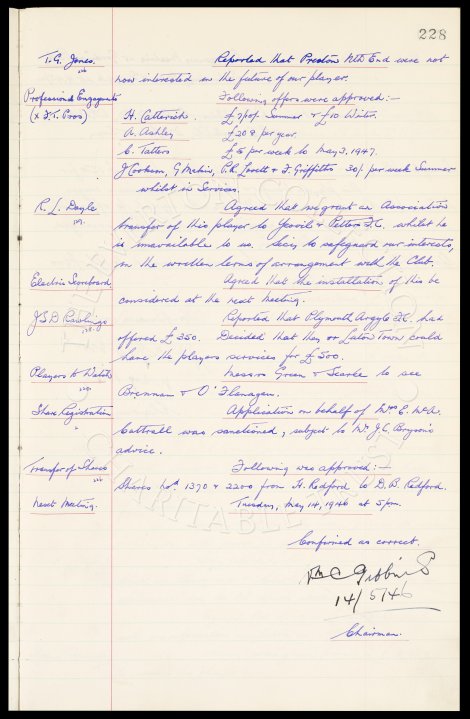 228
T. G. Jones. Reported that Preston Nth End were not
now interested in the future of our player.
Professional Engagements Following offers were approved:-
(x F.T. Pros) H. Catterick. £7 p/w Summer & £10 Winter.
A. Ashley £208 per year.
C. Tatters £5 per week to May 3, 1947.
J Cookson, G Makin, P.R. Lovett & F. Griffiths 30/- per week Summer
whilst in Services.
R. L. Doyle Agreed that we grant an Association
transfer of this player to Yeovil & Petters F.C. whilst he
is unavailable to us. Secy to safeguard our interests,
in the written terms of arrangement with the Club.
Electric Scoreboard Agreed that the installation of this be
considered at the next meeting.
J S B Rawlings Reported that Plymouth Argyle F.C. had
offered £350. Decided that they or Luton Town could
have the players services for £500.
Players to Watch Messrs Green & Searle to see
Brennan & O'Flanagan.
Share Registration Application on behalf of Mrs E. McA.
Cattrall was sanctioned, subject to Mr J. C.
advice.
Transfer of Shares Following was approved:-
Shares nos. 1370 & 2200 from H. Redford to D. B. Redford.
Next Meeting. Tuesday, May 14, 1946 at 5 pm.
Confirmed as correct.
Wm C Gibbins
14/5/46
Chairman.